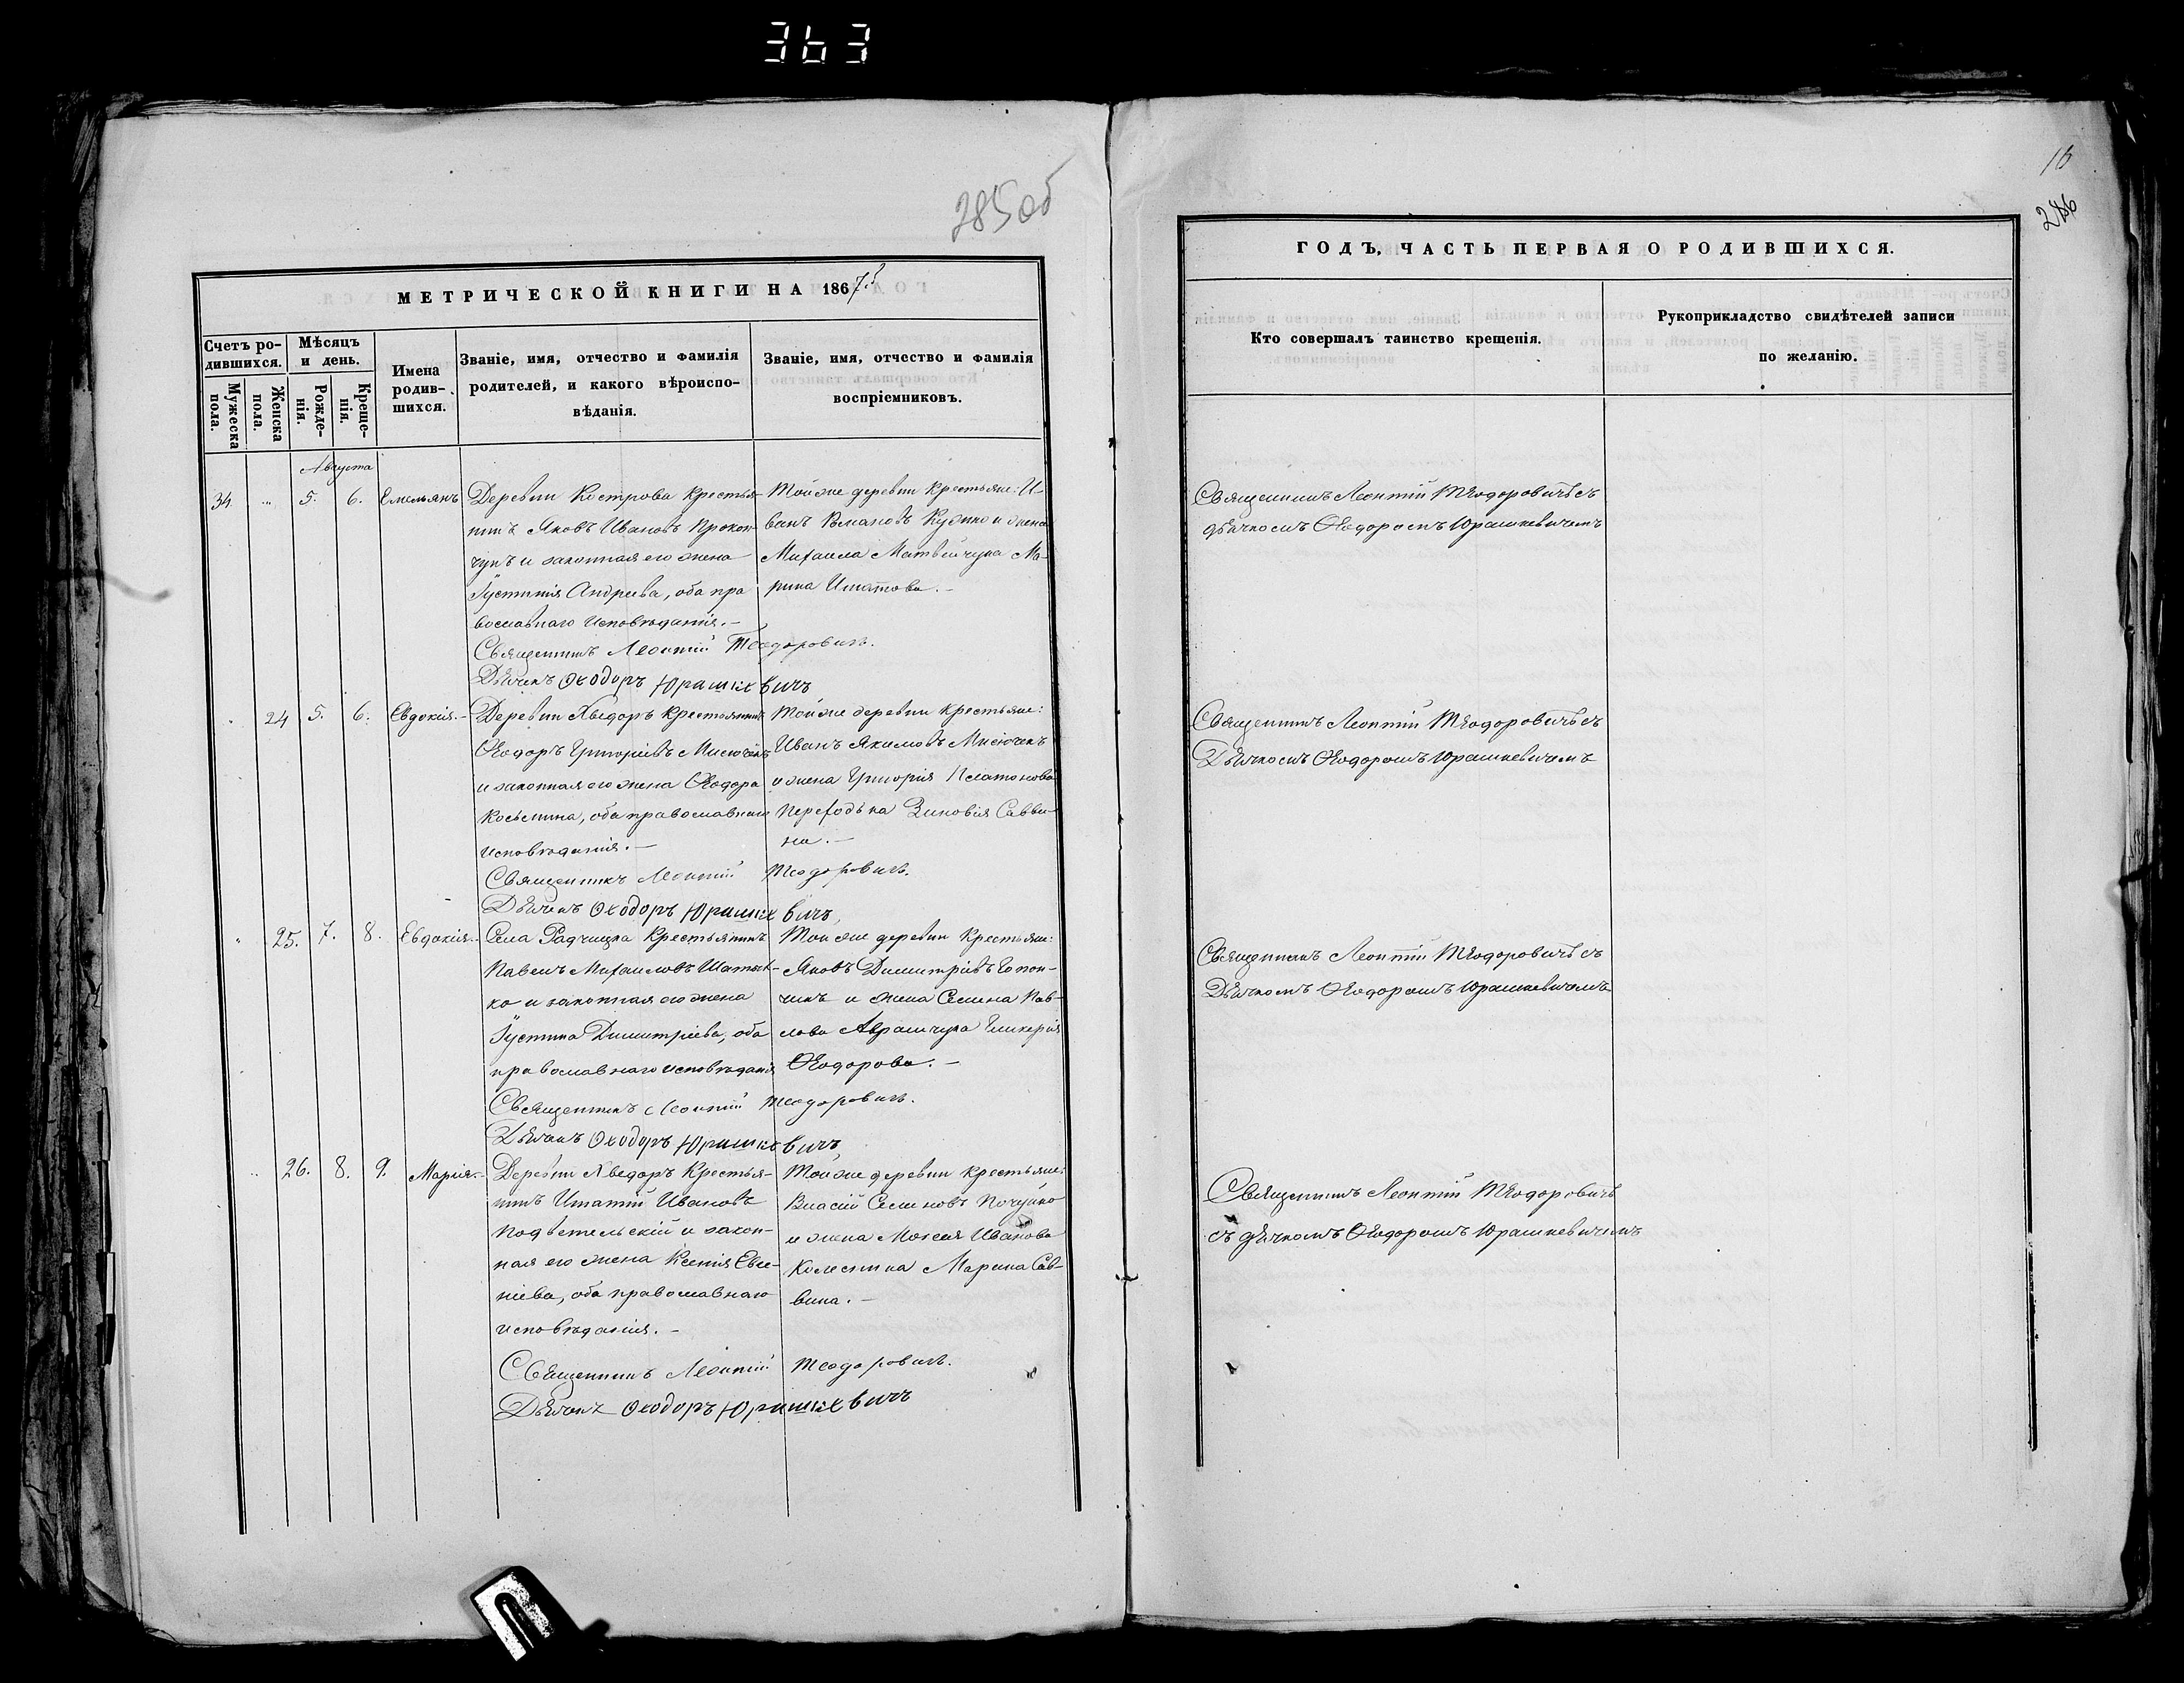 363
285об
МЕТРИЧЕСКОЙ КНИГИ НА 1867.
Счетъ ро-
дившихся.
Мѣсяцъ
и день.
Мужеска
пола.
Женска
пола.
Рожде-
нія.
Креще-
нія.
Имена
родив-
шихся.
Званіе, имя, отчество и фамилія
родителей, и какого вѣроиспо-
вѣданія.
Званіе, имя, отчество и фамилія
воспріемниковъ.
Августа
34 „ 5. 6. Емельянъ
Деревни Кострова Крестья-
нинъ Яковъ Ивановъ Прокоп-
чукъ и законная его жена
Іустинія Андреева, оба пра
вославнаго исповѣданія.–
Священникъ Леонтій Теодоровичъ.
Дьячекъ Ѳеодоръ Юрашкевичъ
Той же деревни крестьяне: И-
ванъ Кузмко и жена
Михаила Матвейчука Ма-
рина Игнатова.–
„ 24 5. 6. Евдокія.–
Деревни Хведоръ Крестьянинъ
Ѳеодоръ Григоріевъ Мисючекъ
и законная его жена Ѳеодора
Косьмина, оба православнаго
исповѣданія.–
Священникъ Леонтій Теодоровичъ.
Дьячекъ Ѳеодоръ Юрашкевичъ
Той же деревни крестьяне:
Иванъ Якимовъ Мисючекъ
и жена Григорія Платонова
Переходька Зиновія Савви-
на.–
„ 25. 7. 8. Евдокія.–
Села Радчицка Крестьянинъ
Павелъ Михаиловъ Шатьк-
ко и законная его жена
Іустина Димитріева, оба
православнаго исповѣданія
Священникъ Леонтій Теодоровичъ.
Дьячекъ Ѳеодоръ Юрашкевичъ
Той же деревни Крестьяне:
Яковъ Димитріевъ Гопон-
чикъ и жена Семена Пав-
лова Аврамчука Гликерія
Ѳеодорова.–
„ 26. 8. 9. Марія.–
Деревни Хведоръ Крестья-
нинъ Игнатій Ивановъ
Подвѣтельскій и закон-
ная его жена Ксенія Евсе-
ніева, оба православнаго
исповѣданія.–
Священникъ Леонтій Теодоровичъ.
Дьячекъ Ѳеодоръ Юрашкевичъ
Той же деревни крестьяне:
Власій Семеновъ Почуйко
и жена Моисея Иванова
Колесника Марина Сав-
вина.–
16
286
ГОДЪ, ЧАСТЬ ПЕРВАЯ О РОДИВШИХСЯ.
Кто совершалъ таинство крещенія.
Рукоприкладство свидѣтелей записи
по желанію.
Священникъ Леонтій Теодоровичъ съ
дьячкомъ Ѳеодоромъ Юрашкевичемъ
Священникъ Леонтій Теодоровичъ съ
Дьячкомъ Ѳеодоромъ Юрашкевичемъ
Священникъ Леонтій Теодоровичъ съ
Дьячкомъ Ѳеодоромъ Юрашкевичемъ
Священникъ Леонтій Теодоровичъ
съ дьячкомъ Ѳеодоромъ Юрашкевичемъ